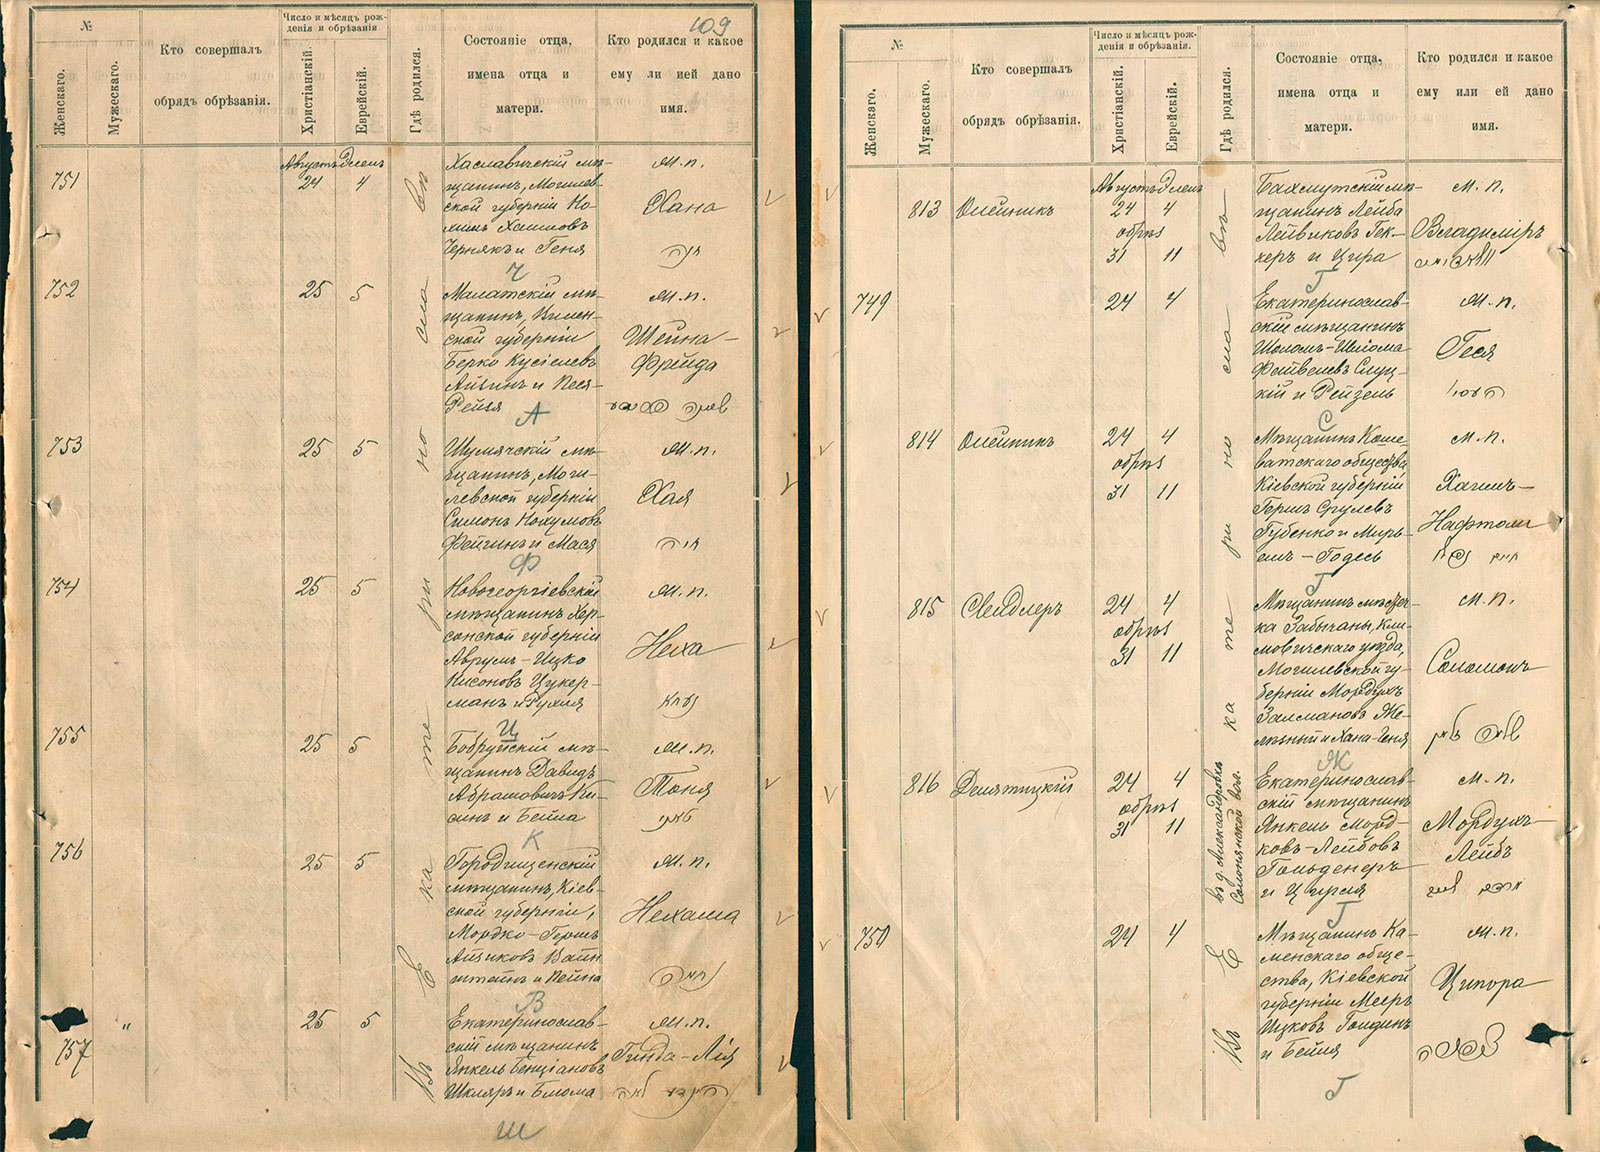 109
№
Женскаго.
Мужескаго.
Кто совершалъ
обрядъ обрѣзанія.
Число и мѣсяцъ рож-
денія и обрѣзанія
Христіанскій.
Еврейскій.
Гдѣ родился.
Состояніе отца,
имена отца и
матери.
Кто родился и какое
ему ли ией дано
имя.
751
Августъ Элелъ
24 4
Хославичскій мѣ-
щанинъ, Могилев-
ской губерніи Но-
Черняк и Геня
М.п.
Хана
חנה
Ч
752
25 5
Малатскій мѣ-
щанинъ, Вилен-
ской губерніи
Берко Кусіелевъ
Айзинъ и Песя-
Рейзя
М.п.
Шейна-
Фрейда
А
753
25 5
Шумячскій мѣ-
щанинъ, Моги-
левской губерніи
Симонъ Нохумовъ
Фейгинъ и Мася
М.п.
Хая
חיה
Ф
754
25 5
Новогеоргіевскій
мѣщанинъ Хер-
сонской губерніи
Аврумъ-Ицко
Нисоновъ Цукер-
манъ и Рухля
М.п.
Неха
נעחא
Ц
755
25 5
Бобруйскій мѣ-
щанинъ Давидъ
Абрамовичъ Ки-
синъ и Бейла
М.п.
Таня
טאני
К
756
25 5
Городищенскій
мѣщанинъ, Кіев-
ской губерніи,
Мордко-Гершъ
Айзиковъ Вайн-
штейнъ и Пейна
М.п.
Нехама
נחמה
В
757
"
25 5
Екатеринослав-
скій мѣщанинъ
Янкель Бенціановъ
Шкляръ и Блюма
М.п.
Гинда-Лія
הינדא לאה
Ш
Въ Екатеринославѣ
№
Женскаго.
Мужескаго.
Кто совершалъ
обрядъ обрѣзанія.
Число и мѣсяцъ рож-
денія и обрѣзанія.
Христіанскій.
Еврейскій.
Гдѣ родился.
Состояніе отца,
имена отца и
матери.
Кто родился и какое
ему или ей дано
имя.
813
Олейникъ
Августъ Элелъ
24 4
обрѣз
31 11
Бахмутскій мѣ-
щанинъ Лейба
Лейвиковъ Гек-
керъ и Цира
М.п.
Владиміръ
Г
749
24 4
Екатеринослав-
скій мѣщанинъ
Шоломъ-Шлома
Файвелевъ Слуц-
кій и Рейзель
М.п.
Геся
העסי
С
814
Олейникъ
24 4
обрѣз
31 11
Мѣщанинъ Коше-
ватскаго общества,
Кіевской губерніи
Гершъ Срулевъ
Губенко и Мирь-
емъ-Годесь
М.п.
Хаимъ-
Нафтоли
Г
815
Свидлеръ
24 4
обрѣз
31 11
Мѣщанинъ мѣстеч-
ка Забычаны, Кли-
мовичскаго уѣзда,
Могилевской гу-
берніи Мордухъ
Залмановъ Же-
лѣзный и Хана-Геня
М.п.
Соломонъ
Ж
816
Девятицкій
24 4
обрѣз
31 11
въ д. Александровкѣ
вол.
Екатеринослав-
скій мѣщанинъ
Янкель Морд-
ковъ-Лейбовъ
Гольденеръ
и Цирля
М.п.
Мордухъ
Лейбъ
Г
750
24 4
Мѣщанинъ Ка-
менскаго обще-
ства, Кіевской
губерніи Мееръ
Ицковъ Голдинъ
и Бейля
М.п.
Ципора
צפורה
Г
Въ Екатеринославѣ